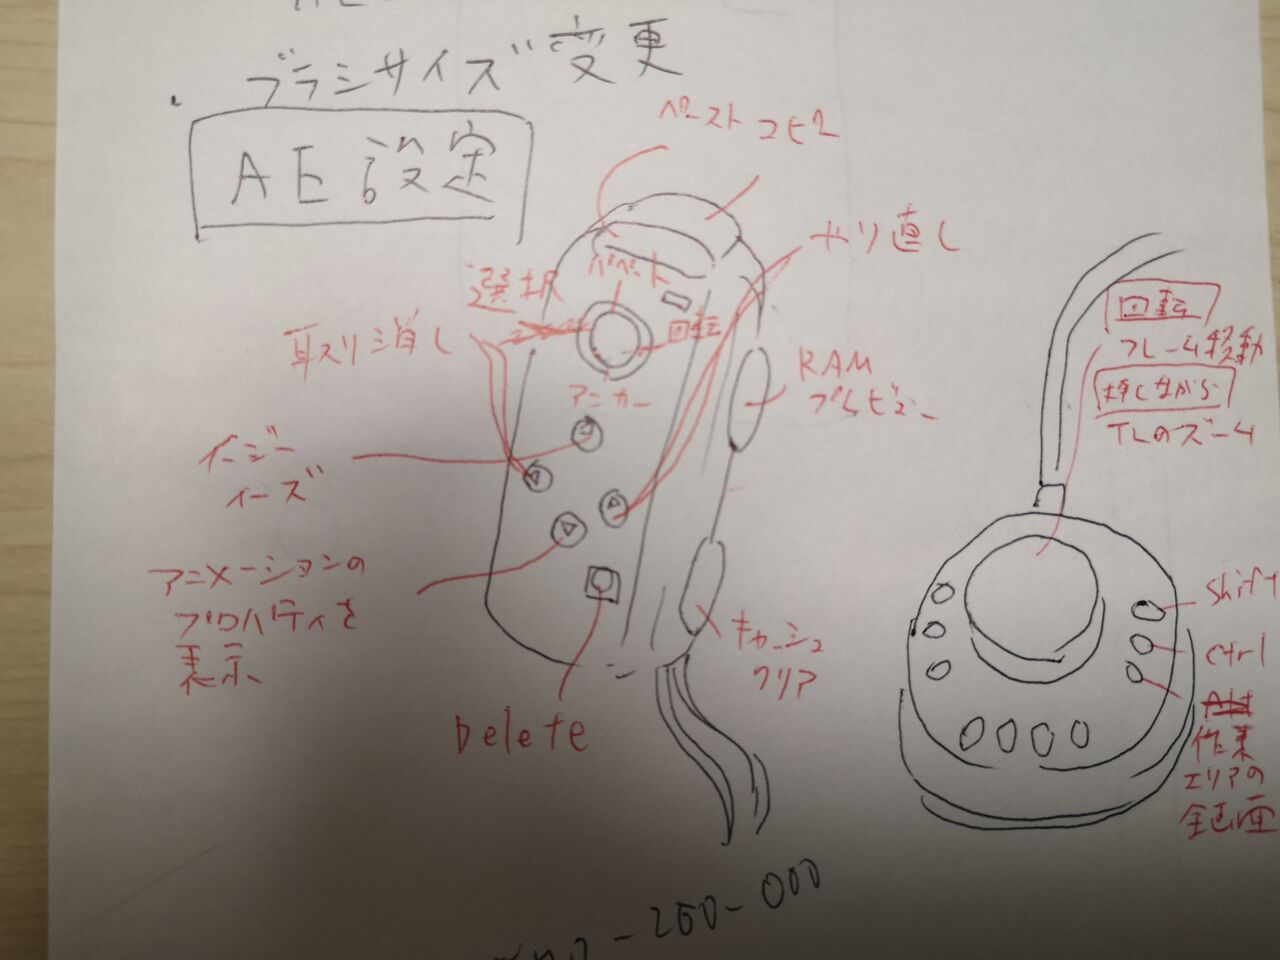 ブラシサイズ変更
AE設定
ペースト コピー
やり直し
選択
パペット
回転
アニカー
取り消し
RAM
プレビュー
イージー
イーズ
アニメーションの
プロパティを
表示
キャッシュ
クリア
Delete
回転
フレーム移動
押しながら
TLのズーム
Shift
ctrl
Alt
作業
エリアの
全画面
-250-000